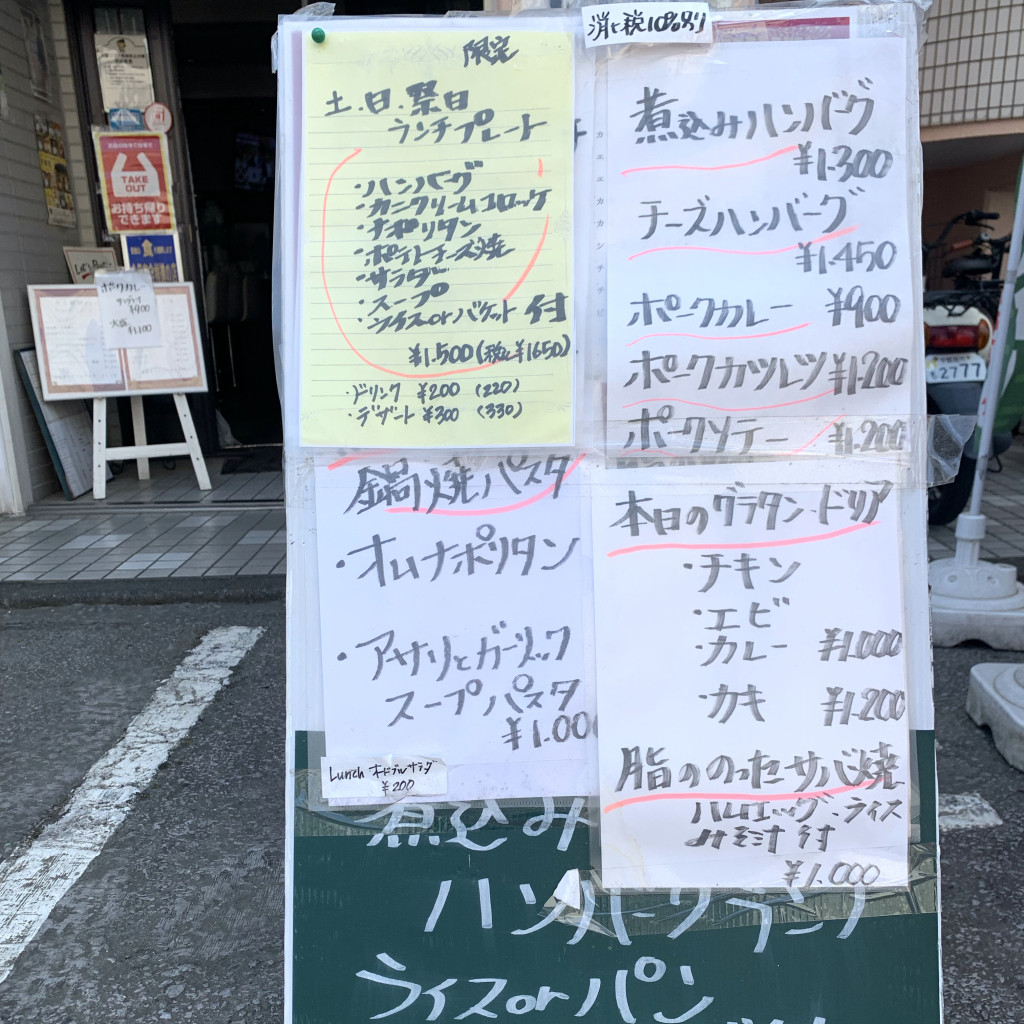 消ヒ税10%別
限定
土.日.祭日
ランチプレート
・ハンバーグ
・カニクリームコロッケ
・ナポリタン
・ポテトチーズ焼
・サラダ
・スープ
・ライスorバケット付
¥1.500(税込¥1650)
・ドリンク ¥200 (220)
・デザート ¥300 (330)
煮込みハンバーグ
¥1.300
チーズハンバーグ
¥1.450
ポークカレー ¥900
ポークカツレツ ¥1.200
ポークソテー ¥1.200
鍋焼パスタ
・オムナポリタン
・アサリとガーリック
スープパスタ
¥1.000
Lunch オードブルサラダ
¥200
本日のグラタン・ドリア
・チキン
・エビ
・カレー ¥1.000
・カキ ¥1.200
脂ののったサバ焼
ハムエッグ・ライス
みそ汁付
¥1.000
煮込み
ハンバーグランチ
ライスorパン
TAKE
OUT
お持ち帰り
できます
ポークカレー
¥900
大盛
¥1.100
2777